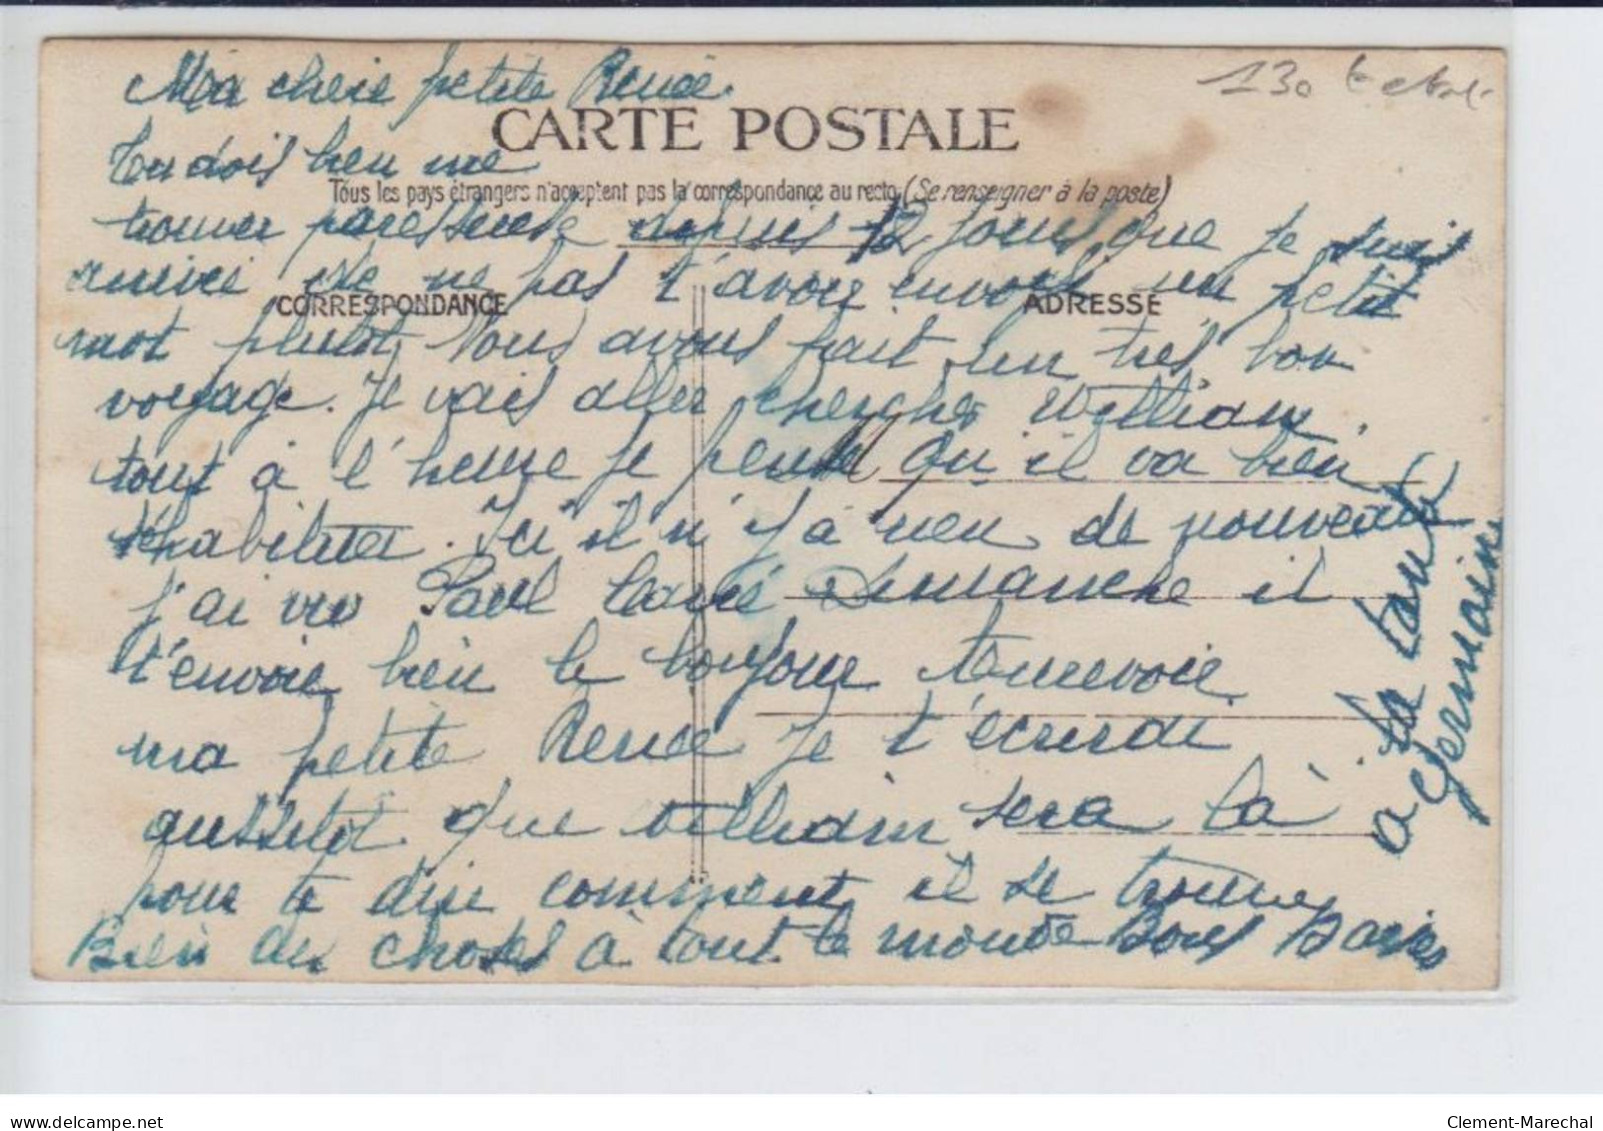 Ma chere petite Renée.
130
CARTE POSTALE
Tu dois bien me
Tous les pays étrangers n'acceptent pas la correspondance au recto (Se renseigner à la poste)
trouver paresseuse depuis 12 jours que je suis
arrivée de ne pas t'avoir envoyé un petit
CORRESPONDANCE
ADRESSE
mot plutot, Nous avons fait un très bon
voyage. Je vais aller chercher William
tout à l'heure je pense qu il va bien
s'habituer. Ici il n'y a rien de nouveau
j'ai vu Paul Dimanche il
t'envoie bien le bonjour
ma petite Renée je t'écrirai
aussitot que William sera là
pour te dire comment il se trouve
Bien des choses à tout le monde Bons Baisers
Ta tante
Germaine
delcampe.net
Clement-Marechal